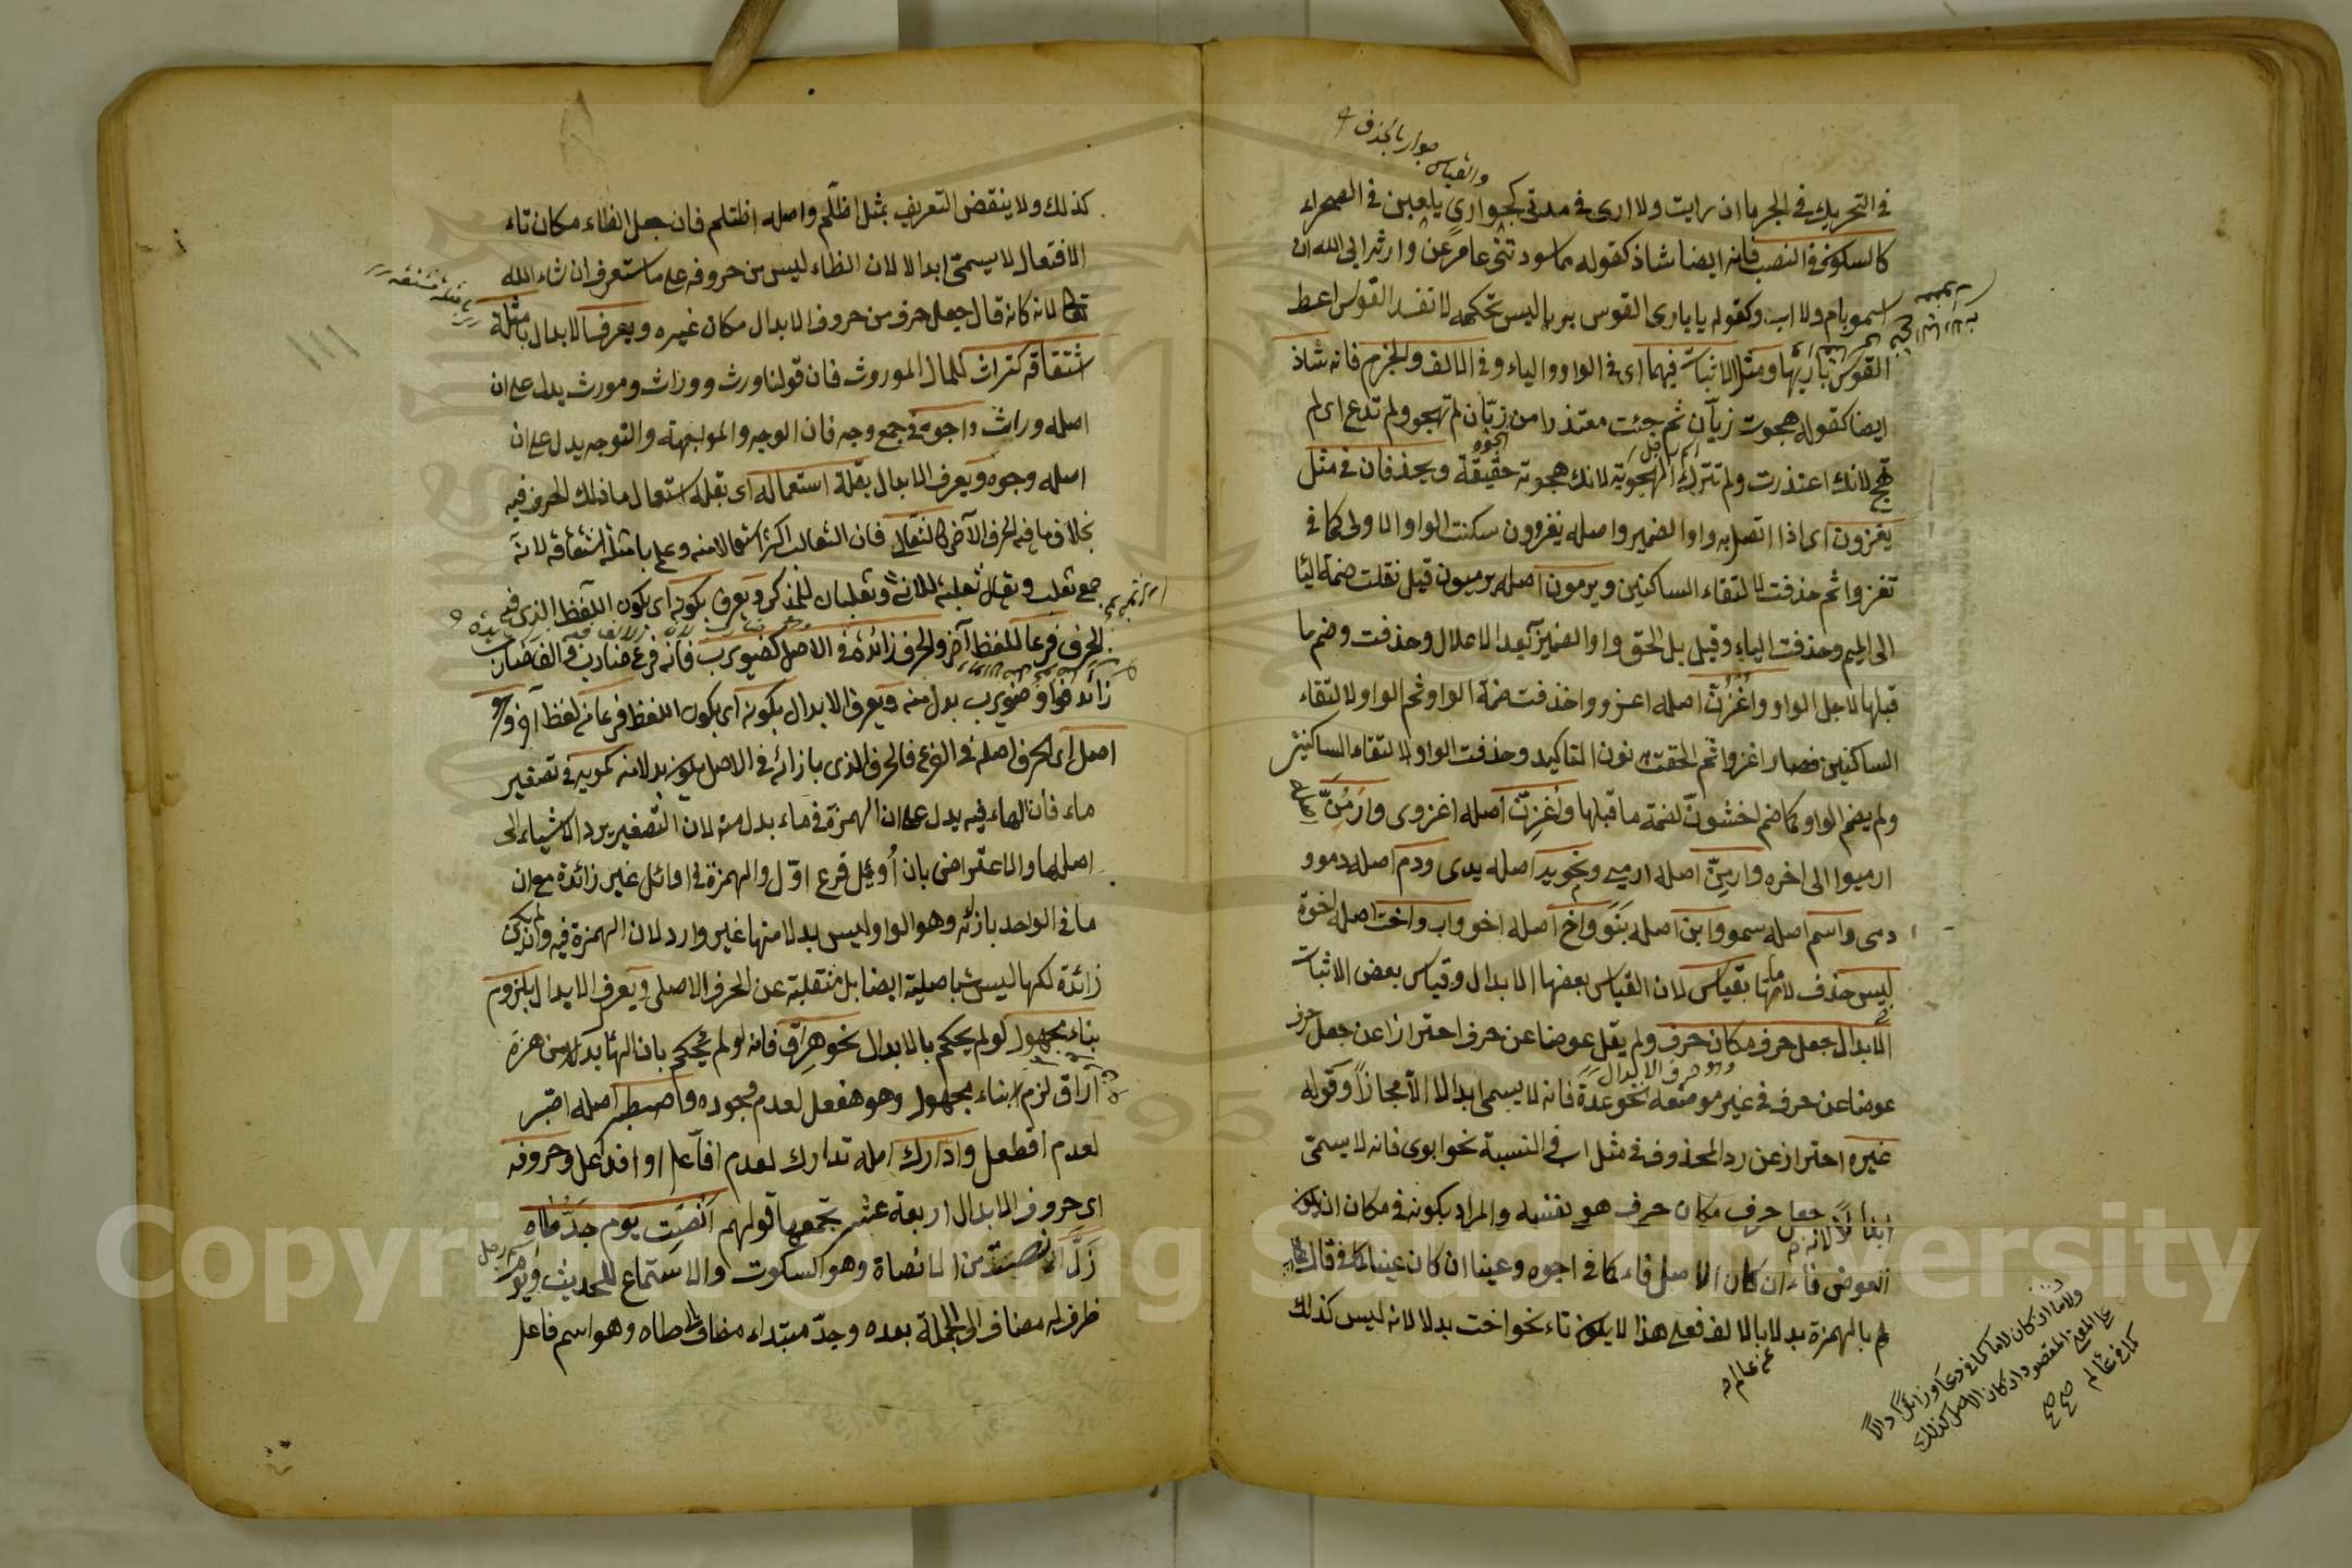 والقياس جوار بالحذف
في التحريك في الجر ما ان رايت ولا ارى في مدتي كجواري يلعبن في الصحراء
كالسكون في النصب فانه ايضا شاذ كقوله مما سودتني عامر عن وارث ابى الله ان
اسمو بام ولا اب وكقوله يا باري القوس بريا ليس تحكمه لا تفسد القوس اعط
القوس باريها ومثل الاثبات فيهما اى في الواو والياء وفي الالف والجزم فانه شاذ
ايضا كقوله هجوت زبان ثم جئت معتذرا من زبان لم تهجو ولم تدع اى لم
تهج لانك اعتذرت ولم تترك الهجو لانك هجوته حقيقة ويحذفان في مثل
يغزون اى اذا اتصل به واو الضمير واصله يغزوون سكنت الواو الاولى كما في
تغزو ثم حذفت لالتقاء الساكنين ويرمون اصله يرميون قيل نقلت ضمة اليا
الى الميم وحذفت الياء وقيل بل الحق واو الضمير بعد الاعلال وحذفت وضم ما
قبلها لاجل الواو واغزن اصله اغزووا حذفت ضمة الواو ثم الواو لالتقاء
الساكنين فصار اغزوا ثم الحقت نون التاكيد وحذفت الواو لالتقاء الساكنين
ولم يضم الواو كما ضم اخشون لضمة ما قبلها واغزن اصله اغزوى وارمن
ارميوا الى اخره وارمن اصله ارميى ونحو يد اصله يدى ودم اصله دمو و
دمى واسم اصله سمو وابن اصله بنو واخ اصله اخو واب واخت اصله اخوة
ليس حذف لاماتها بقياس لان القياس بعضها الابدال وقياس بعض الاثبات
الابدال جعل حرف مكان حرف ولم يقل عوضا عن حرف احترازا عن جعل حرف
عوضا عن حرف في غير موضعه نحو عدة فانه لا يسمى ابدالا الا مجازا وقوله
غيره احتراز عن رد المحذوف في مثل اب في النسبة نحو ابوى فانه لا يسمى
ابدالا لانه جعل حرف مكان حرف هو نفسه والمراد بكونه في مكان ان يكون
العوض فاء ان كان الاصل فاء كما في اجوه وعينا ان كان عينا كما في قال
ولاما ان كان لاما كما في دعا وزائدا
على المعنى المقصود ان كان الاصل كذلك
كما في عالم صح صح
لم بالهمزة بدلا بالالف فعلى هذا لا يكون تاء نحو اخت بدلا لانه ليس كذلك
كذلك ولا ينقض التعريف بمثل اظلم واصله اظتلم فان جعل الظاء مكان تاء
الافتعال لا يسمى ابدالا لان الظاء ليس من حروفه على ما ستعرف ان شاء الله
تعا لانه كانه قال جعل حرف من حروف الابدال مكان غيره ويعرف الابدال بامثلة
اشتقاقه كتراث للمال الموروث فان قولنا ورث ووراث ومورث يدل على ان
اصله وراث واجوه في جمع وجه فان الوجه والمواجهة والتوجه يدل على ان
اصله وجوه ويعرف الابدال بقلة استعماله اى بقلة استعمال ما ذلك الحرف فيه
بخلاف ما فيه الحرف الآخر كالثعالى فان الثعالب اكثر استعمالا منه وعلم بامثلة اشتقاقه لانه
جمع ثعلب ويقال ثعلبة للانثى وثعلبان للمذكر ويعرف بكونه اى بكون اللفظ الذى فيه
الحرف فرعا للفظ آخر والحرف زائدة في الاصل كضويرب فانه فرع ضارب والف ضارب
زائد فواو ضويرب بدل منه ويعرف الابدال بكونه اى بكون اللفظ فرعا من لفظ آخر وهو
اصل اى الحرف اصل في الفرع فالحرف الذى بازائه في الاصل يكون بدلا منه كمويه في تصغير
ماء فان الهاء فيه يدل على ان الهمزة في ماء بدل منه لان التصغير يرد الاشياء الى
اصلها والاعتراض بان أويل فرع اول والهمزة في اوائل غير زائدة مع ان
ما في الواحد بازائه وهو الواو ليس بدلا منها غير وارد لان الهمزة فيه وان لم يكن
زائدة لكنها ليست باصلية ايضا بل منقلبة عن الحرف الاصلى ويعرف الابدال بلزوم
بناء مجهول لو لم يحكم بالابدال نحو هراق فانه لو لم يحكم بان الها بدل من همزة
اراق لزم بناء مجهول وهو هفعل لعدم وجوده واصطبر اصله اصتبر
لعدم افطعل وادارك اصله تدارك لعدم افاعل او افداعل وحروفه
اى حروف الابدال اربعة عشر يجمعها قولهم انصت يوم جد طاه
زل انصت من الانصاة وهو السكوت والاستماع للحديث ويوم
ظرف له مضاف الى الجملة بعده وجد مبتداء مضاف الى طاه وهو اسم فاعل